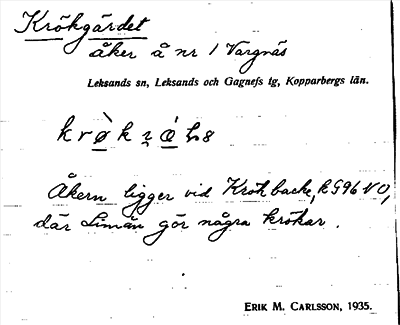 Krökgärdet
åker å nr 1 Vargnäs
Leksands sn, Leksands och Gagnefs tg, Kopparbergs län.
Åkern ligger vid Krökbacke, RG96 NO,
där Limån gör några krökar.
ERIK M. CARLSSON, 1935.